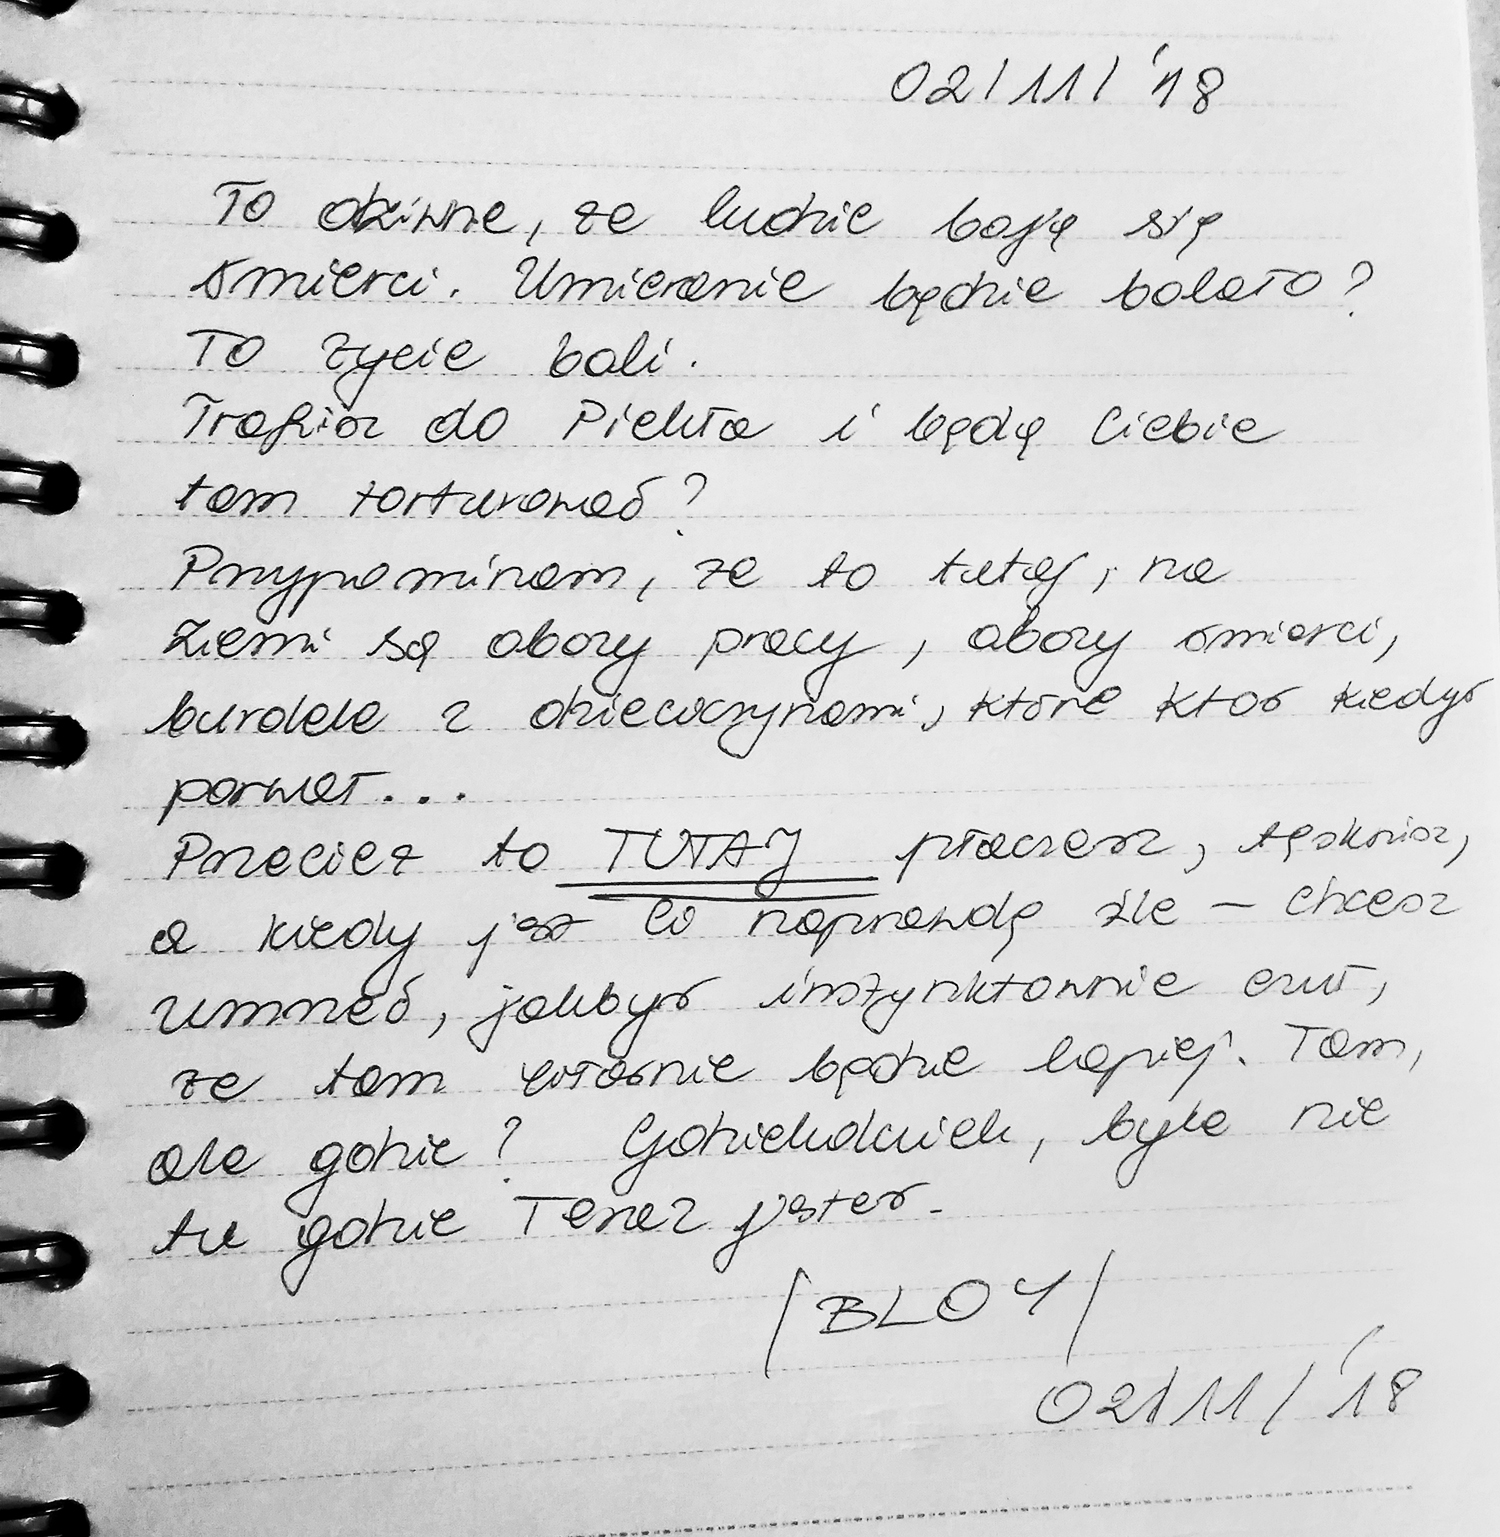 02/11/'18
To dziwne, że ludzie boją się
śmierci. Umieranie będzie bolało?
To życie boli.
Trafisz do Piekła i będą Ciebie
tam torturować?
Przypominam, że to tutaj, na
Ziemi są obozy pracy, obozy śmierci,
burdele z dziewczynami, które ktoś kiedyś
porwał...
Przecież to TUTAJ płaczesz, tęsknisz,
a kiedy jest Ci naprawdę źle - chcesz
umrzeć, jakbyś instynktownie czuł,
że tam właśnie będzie lepiej. Tam,
ale gdzie? Gdziekolwiek, byle nie
tu gdzie Teraz jesteś.
/BLOY/
02/11/'18